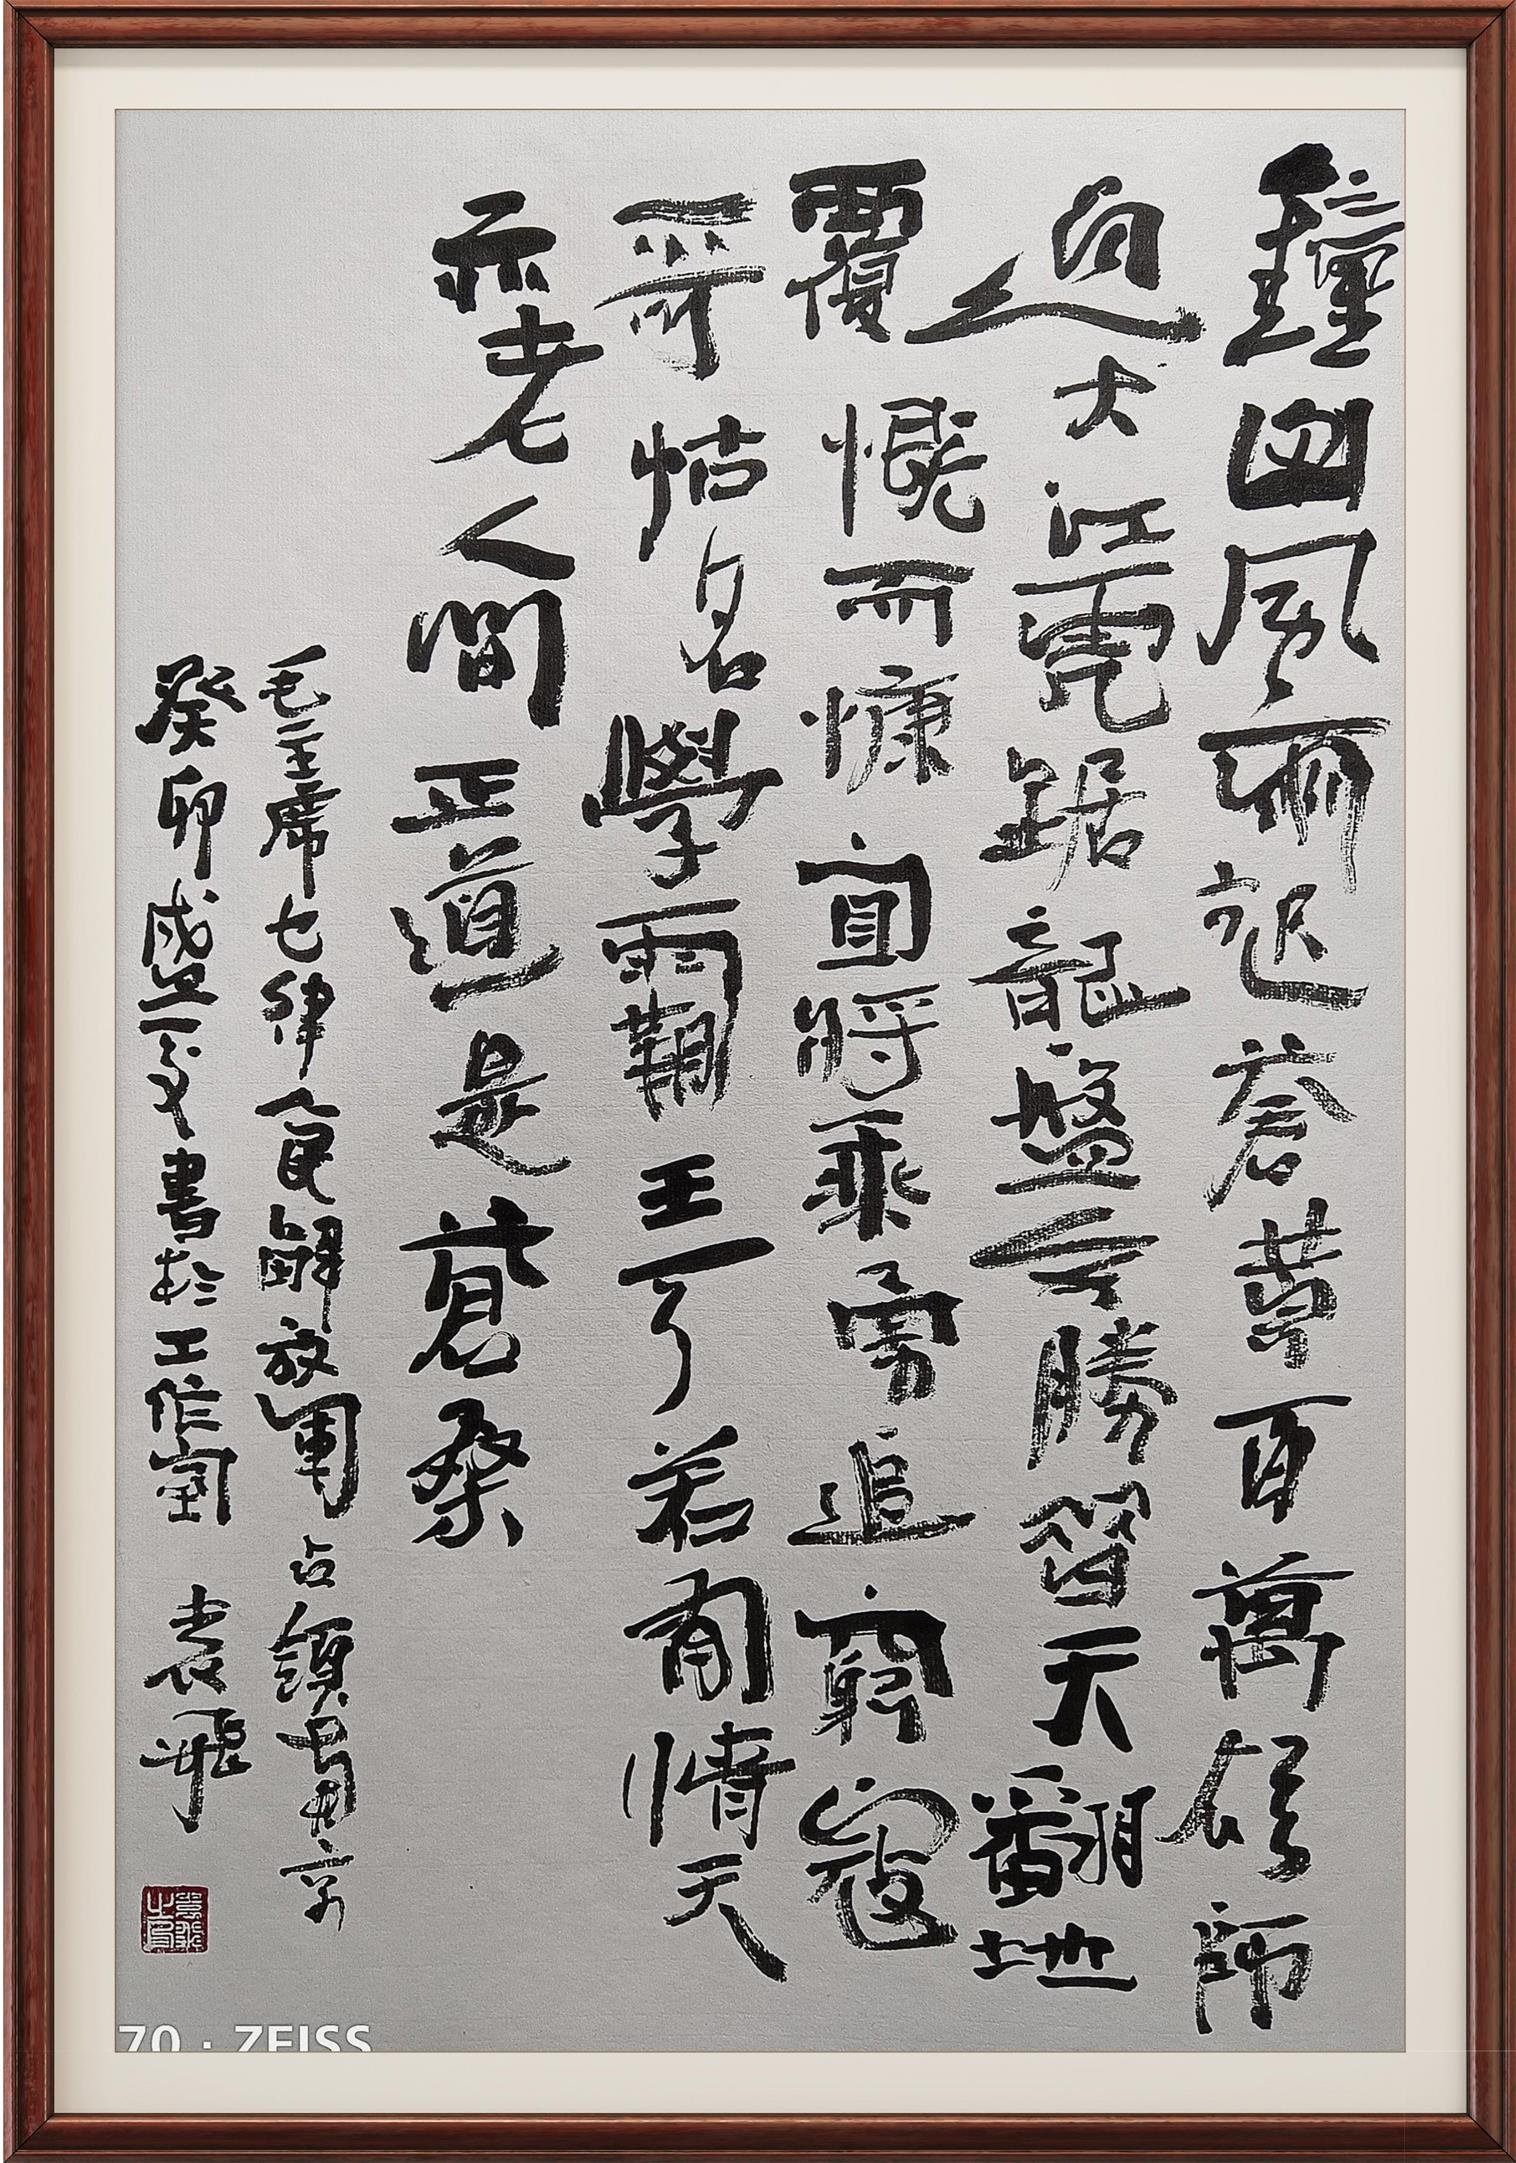 鐘山風雨起蒼黃百萬雄師
過大江虎踞龍盤今勝昔天翻地
覆慨而慷宜將乘勇追窮寇
不可沽名學霸王天若有情天
亦老人間正道是蒼桑
毛主席七律人民解放軍占領南京
癸卯盛夏書於工作室 袁飛
袁飛之印
70 · ZEISS